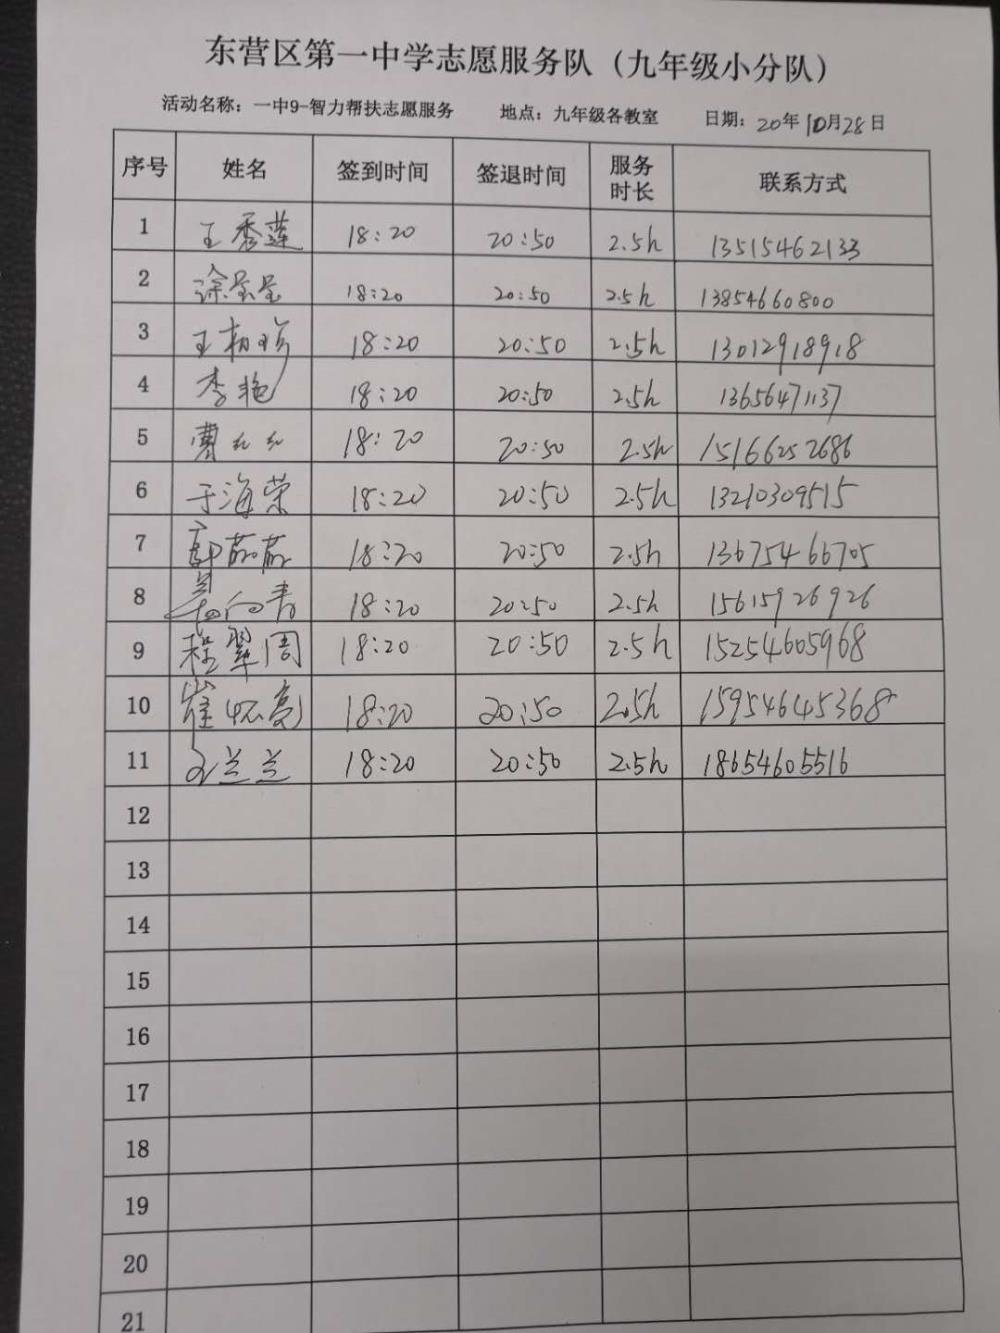 东营区第一中学志愿服务队（九年级小分队）
活动名称：一中9-智力帮扶志愿服务 地点：九年级各教室 日期：20年10月28日
序号 姓名 签到时间 签退时间 服务时长 联系方式
1 王秀莲 18:20 20:50 2.5h 13515462133
2 徐呈呈 18:20 20:50 2.5h 13854660800
3 18:20 20:50 2.5h 13012918918
4 李艳 18:20 20:50 2.5h 13656471137
5 曹红红 18:20 20:50 2.5h 15166252686
6 于海荣 18:20 20:50 2.5h 13210309515
7 郭茹茹 18:20 20:50 2.5h 13675466705
8 18:20 20:50 2.5h 15615926926
9 程翠周 18:20 20:50 2.5h 15254605968
10 崔怀亮 18:20 20:50 2.5h 15954645368
11 兰兰 18:20 20:50 2.5h 18654605516
12
13
14
15
16
17
18
19
20
21